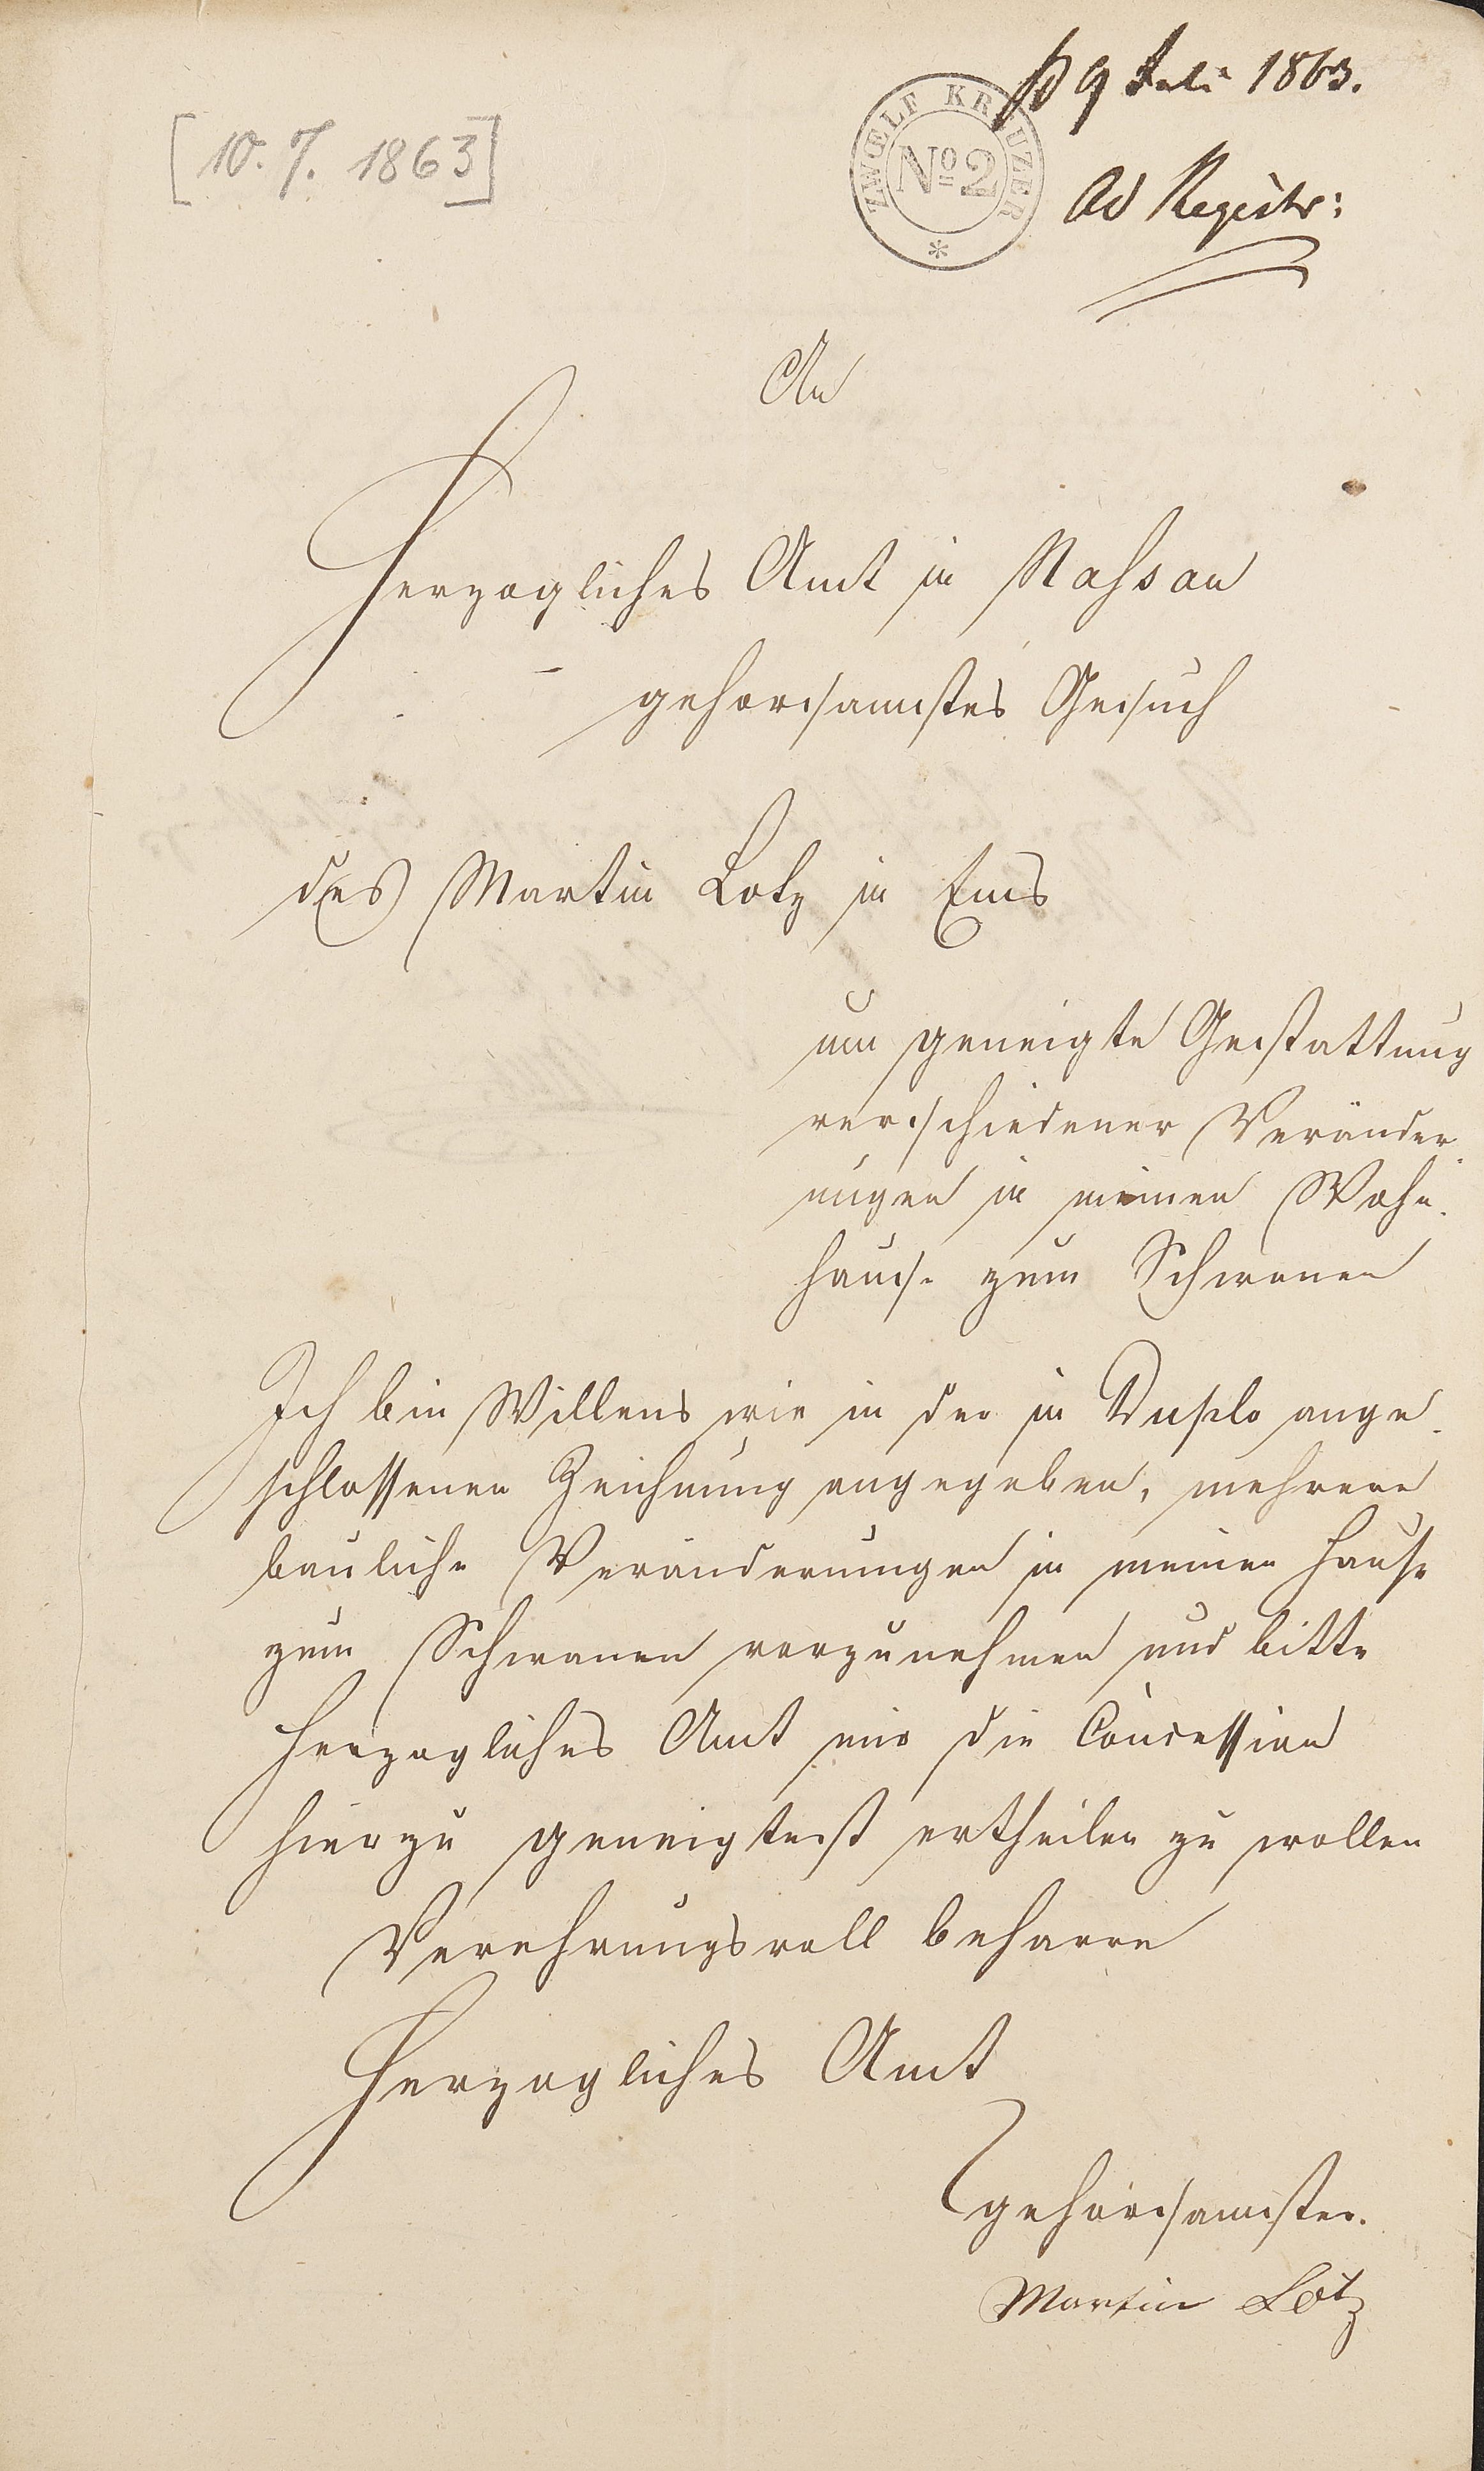 [10. 7. 1863]
ZWŒLF KREUZER
No 2
9 Juli 1863.
Ad Registr:
An
Herzogliches Amt in Nassau
gehorsamstes Gesuch
des Martin Lotz in Ems
um geneigte Gestattung
verschiedener Veränder-
ungen in meinen Wohn-
hause zum Schwanen
Ich bin Willens wie in der in Duplo ange-
schlossenen Zeichnung angegeben, mehrere
bauliche Veränderungen in meinen Hause
zum Schwanen vorzunehmen und bitte
Herzogliches Amt mir die Concession
hierzu geneigtest ertheilen zu wollen
Verehrungsvoll beharre
Herzogliches Amt
gehorsamster.
Martin Lotz